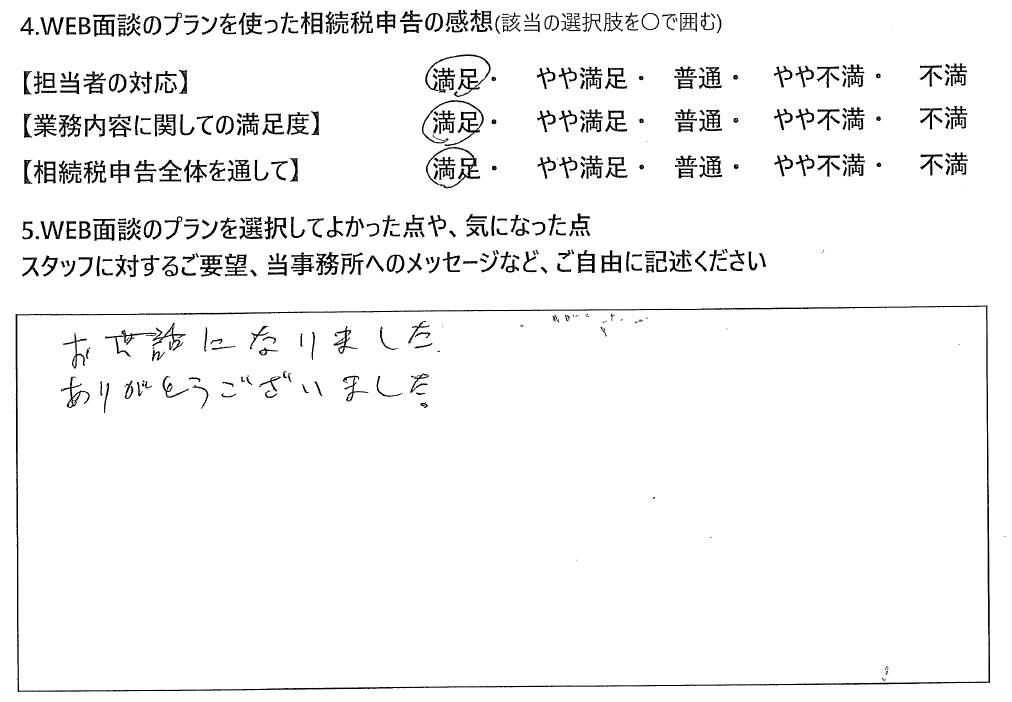 4.WEB面談のプランを使った相続税申告の感想(該当の選択肢を〇で囲む)
【担当者の対応】 満足・ やや満足・ 普通・ やや不満・ 不満
【業務内容に関しての満足度】 満足・ やや満足・ 普通・ やや不満・ 不満
【相続税申告全体を通して】 満足・ やや満足・ 普通・ やや不満・ 不満
5.WEB面談のプランを選択してよかった点や、気になった点
スタッフに対するご要望、当事務所へのメッセージなど、ご自由に記述ください
お世話になりました.
ありがとうございました。